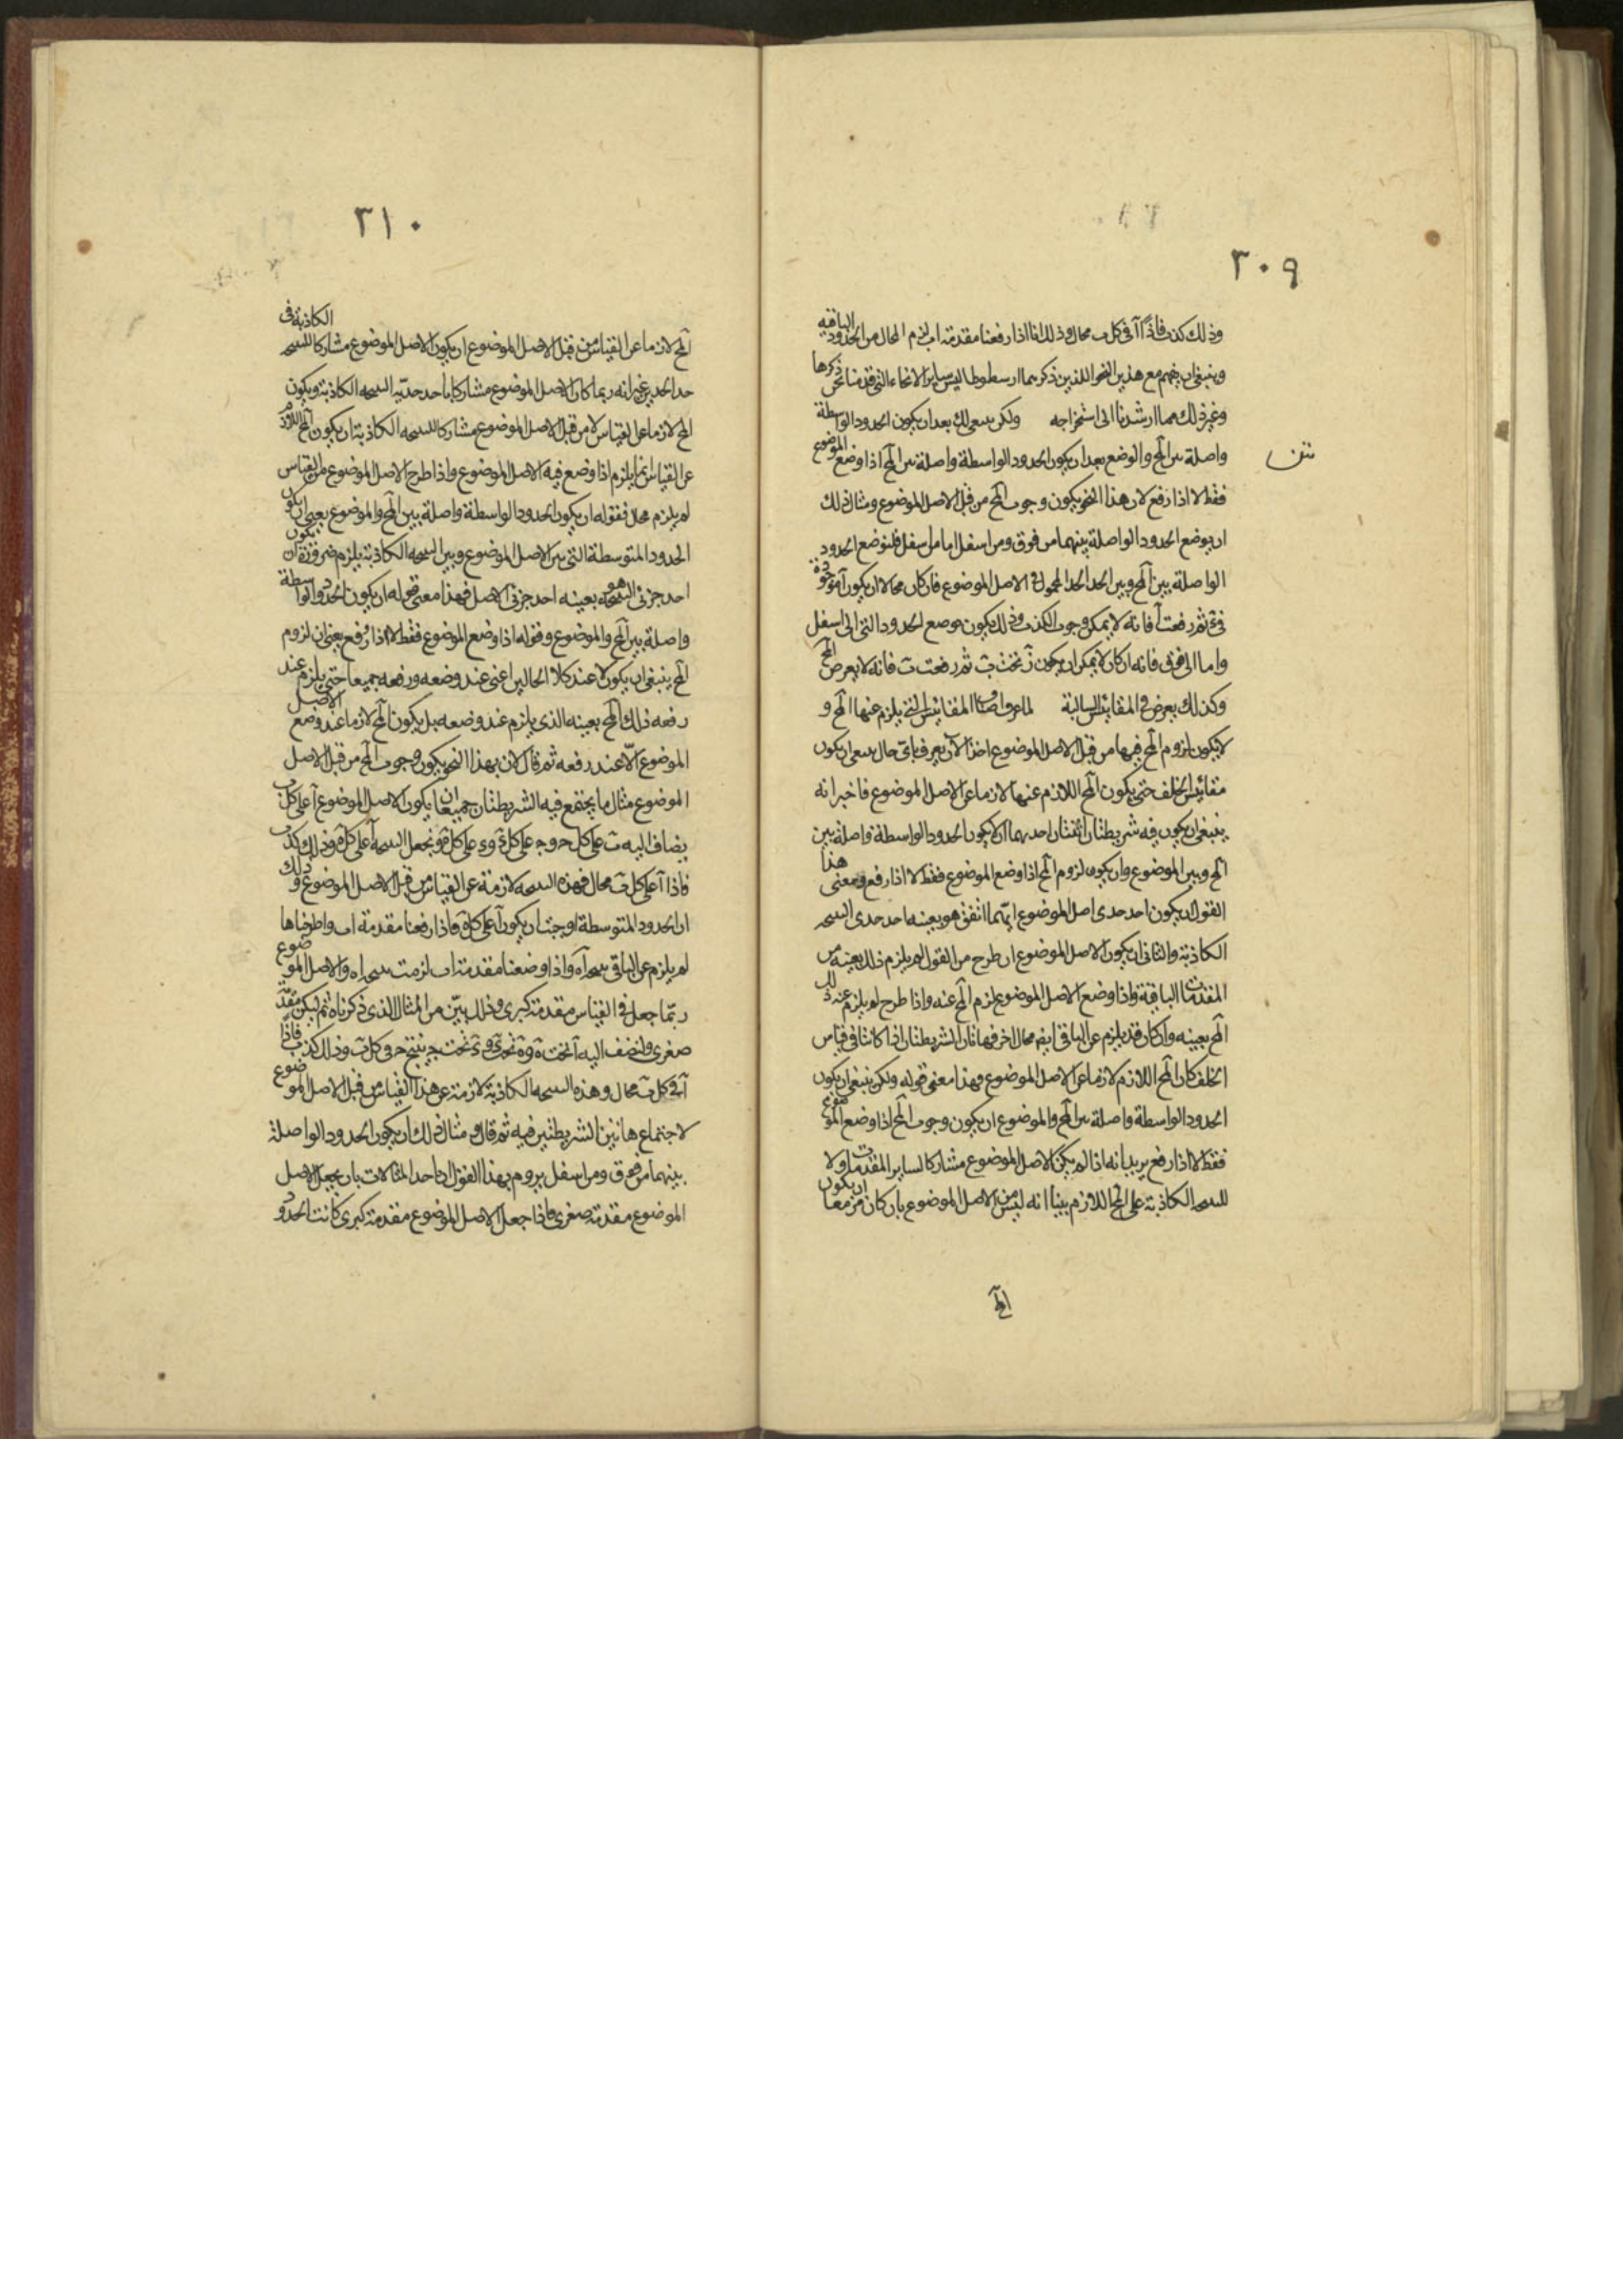 ٣٠٩
وذلك كذب فاذًا آ فى كل ب محال وذلك انا اذا رفعنا مقدمة اب لزم المحال من الحدود الباقيه
وينبغى ان يفهم مع هذين النحو اللذين ذكرهما ارسطوطاليس ساير الانحاء التى قدمنا نحن ذكرها
وغير ذلك مما ارشدنا الى استخراجه ولكن ينبغى لك بعد ان يكون الحدود الواسطة
متن
واصلة بين آلمح والوضع بعد ان يكون الحدود الواسطة واصلة بين آلمح اذا وضع الموضوع
فقط لا اذا رفع لان هذا النحو يكون وجوب آلمح من قبل الاصل الموضوع ومثال ذلك
ان يوضع الحدود الواصلة بينهما من فوق ومن اسفل اما من اسفل فلنوضع الحدود
الواصلة بين آلمح وبين الحد المحمول فى الاصل الموضوع فان كان محالا ان يكون آ موجودة
فى ثم رفعت آ فانه لا يمكن وجوب الكذب وذلك يكون موضع الحدود التى الى اسفل
واما الى فوق فانه ان كان لا يمكن ان يكون ز تحت ب ثم رفعت ب فانه لا يعرض آلمح
وكذلك يعرض فى المقائيس السالبة لما عرف المقائيس التى يلزم عنها آلمح و
لا يكون لزوم آلمح فيها من قبل الاصل الموضوع اخذ الآن يعرف باى حال ينبغى ان يكون
مقائيس الخلف حتى يكون آلمح اللازم عنها لازما عن الاصل الموضوع فاخبر انه
ينبغى ان يكون فيه شريطتان اثنتان احديهما ان يكون الحدود الواسطة واصلة بين
آلمح وبين الموضوع وان يكون لزوم آلمح اذا وضع الموضوع فقط لا اذا رفع ومعنى هذا
القول ان يكون احد حدى اصل الموضوع ايّهما اتفق هو بعينه احد حدى النتيجه
الكاذبة والثانى ان يكون الاصل الموضوع ان طرح من القول لم يلزم ذلك بعينه من
المقدمات الباقية واذا وضع الاصل الموضوع لزم آلمح عنه واذا طرح لم يلزم عنه ذلك
آلمح بعينه وان كان قد يلزم عن الباقى ايضه محال اخر فهاتان الشريطتان اذا كانتا فى قياس
الخلف كان آلمح اللازم لازما عن الاصل الموضوع وهذا معنى قوله ولكن ينبغى ان يكون
الحدود الواسطة واصلة بين آلمح والموضوع ان يكون وجوب آلمح اذا وضع الموضوع
فقط لا اذا رفع يريد انه اذا لم يكن الاصل الموضوع مشاركا لساير المقدمات ولا
للنتيجه الكاذبة على آلمح اللازم بينا انه ليس من الاصل الموضوع بان كان مزمعا ان يكون
آلمح
٣١٠
آلمح لازما عن القياس من قبل الاصل الموضوع ان يكون الاصل الموضوع مشاركا للنتيجه الكاذبة فى
حد الحدين غير انه ربما كان الاصل الموضوع مشاركا باحد حدّيه النتيجه الكاذبة ويكون
آلمح لازما عن القياس لا من قبل الاصل الموضوع مشاركا للنتيجه الكاذبة ان يكون آلمح اللازم
عن القياس انما يلزم اذا وضع فيه الاصل الموضوع واذا طرح الاصل الموضوع من القياس
لم يلزم محال فقوله ان يكون الحدود الواسطة واصلة بين آلمح والموضوع يعنى ان يكون
الحدود المتوسطة التى بين الاصل الموضوع وبين النتيجه الكاذبة يلزم ضرورة ان يكون
احد جزئى النتيجه هو بعينه احد جزئى الاصل فهذا معنى قوله ان يكون الحدود الواسطة
واصلة بين آلمح والموضوع وقوله اذا وضع الموضوع فقط لا اذا رفع يعنى ان لزوم
آلمح ينبغى ان يكون لا عند كلا الحالين اعنى عند وضعه ورفعه جميعا حتى يلزم عند
رفعه ذلك آلمح بعينه الذى يلزم عند وضعه بل يكون آلمح لازما عند وضع الاصل
الموضوع الّا عند رفعه ثم قال لان بهذا النحو يكون وجوب آلمح من قبل الاصل
الموضوع مثال ما يجتمع فيه الشريطتان جميعا ان يكون الاصل الموضوع آ على كل ب
يضاف اليه ب على كل ح و ج على كل ى و ى على كل ه ونجعل النتيجه آ على كل ه وذلك كذب
فاذا آ على كل ب محال فهذه النتيجه لازمة عن القياس من قبل الاصل الموضوع وذلك
ان الحدود المتوسطة اوجبت ان يكون آ على كل ه فاذا رفعنا مقدمة اب واطرحناها
لم يلزم عن الباقى نتيجه آه واذا وضعنا مقدمة اب لزمت نتيجه اه والاصل الموضوع
ربّما جعل فى القياس مقدمة كبرى وذلك بيّن من المثال الذى ذكرناه ثم ليكن مقدّمة
صغرى ولنضف اليه آ تحت ه و ه تحت ى و ى تحت ج ينتج ح فى كل ب وذلك كذب فاذًا
آ فى كل ب محال وهذه النتيجه الكاذبة لازمة عن هذا القياس من قبل الاصل الموضوع
لاجتماع هاتين الشريطتين فيه ثم قال ومثال ذلك ان يكون الحدود الواصلة
بينهما من فوق ومن اسفل يروم بهذا القول ايراد احد المثالات بان يجعل الاصل
الموضوع مقدمة صغرى فاذا جعل الاصل الموضوع مقدمة كبرى كانت الحدود